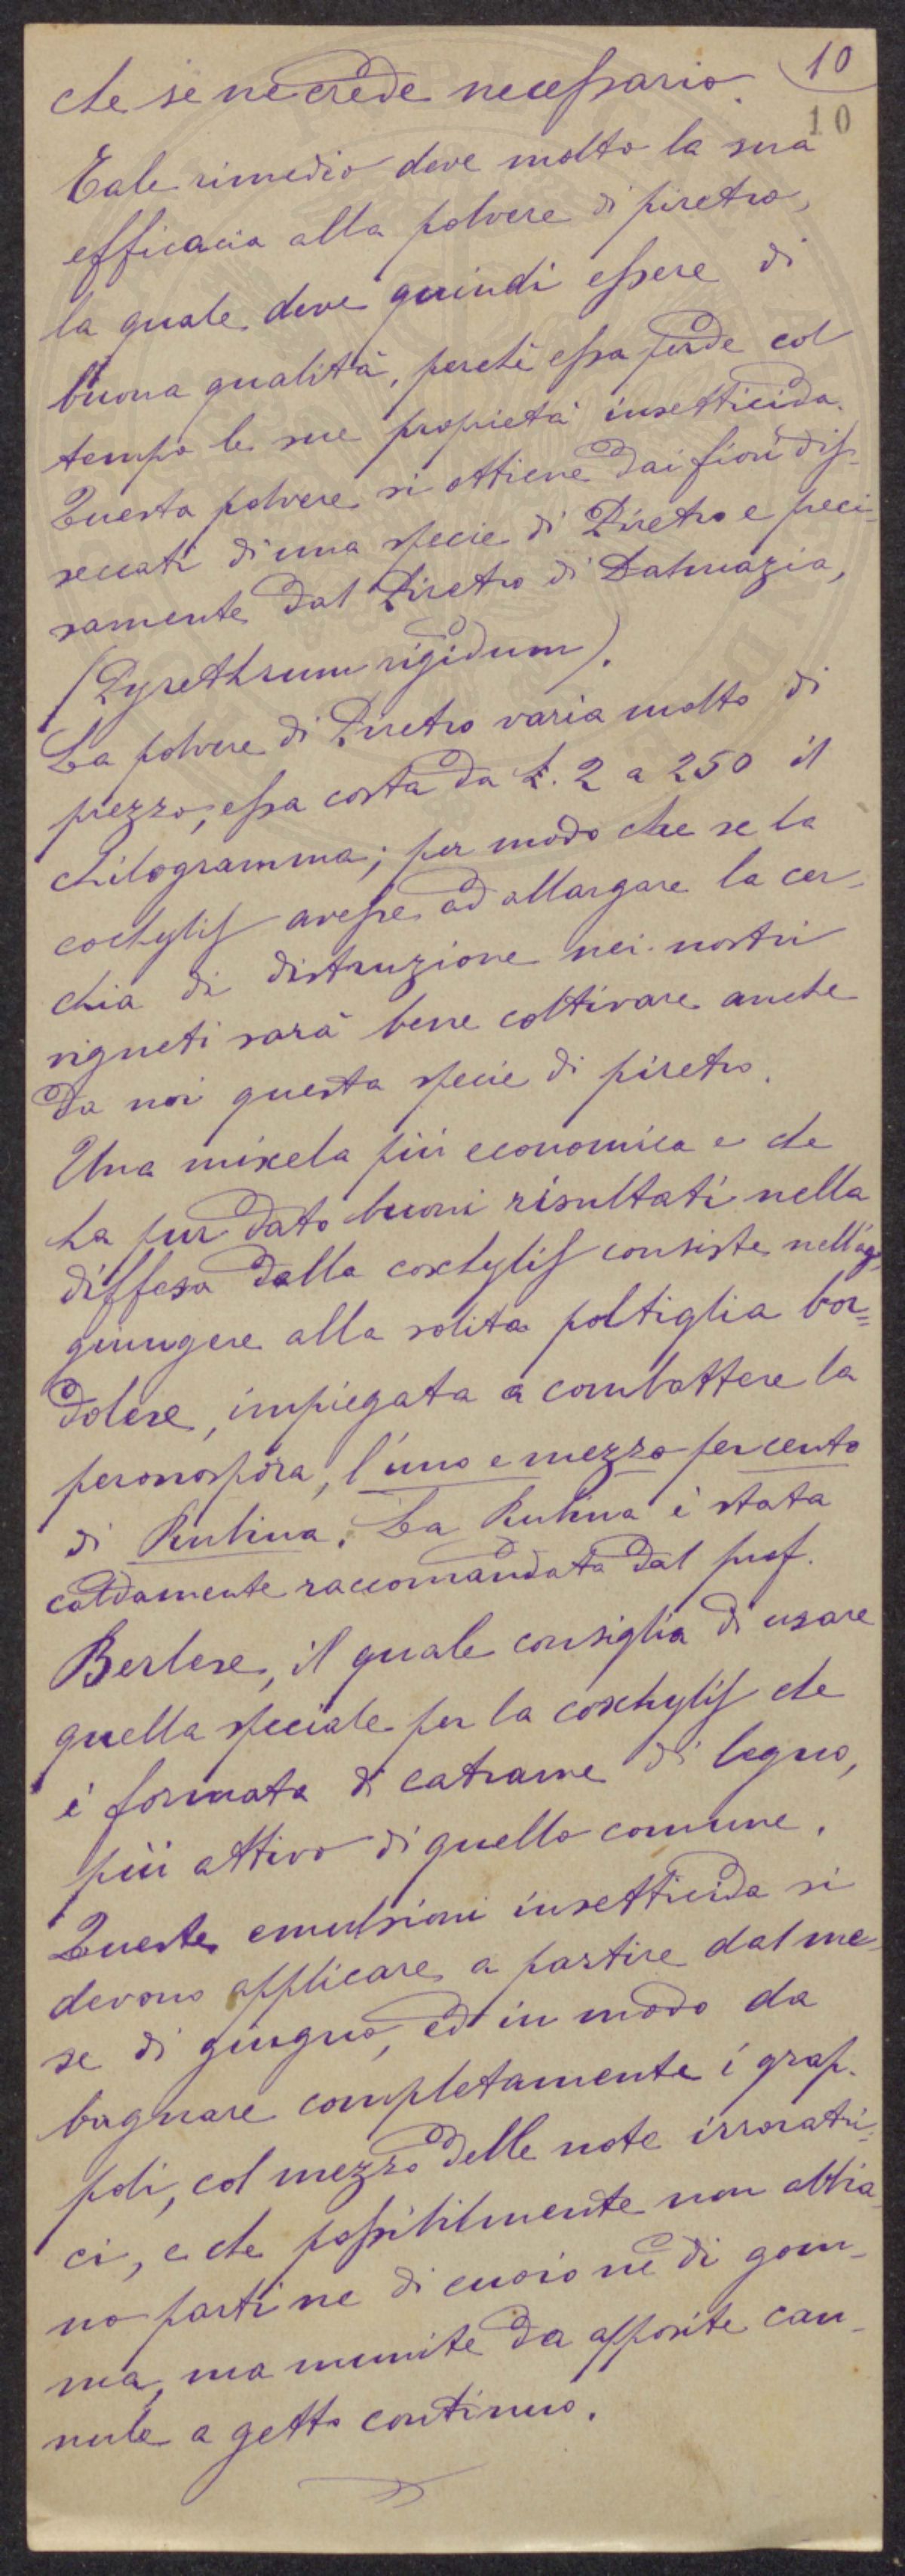 10
che se ne crede necessario.
10
Tale rimedio deve molto la sua
efficacia alla polvere di piretro,
la quale deve quindi essere di
buona qualità, perchè essa perde col
tempo le sue proprietà insetticida.
Questa polvere si ottiene dai fiori dis-
seccati di una specie di Piretro e preci-
samente dal Piretro di Dalmazia,
(Pyrethrum rigidum).
La polvere di Piretro varia molto di
prezzo, essa costa da £. 2 a 250 il
chilogramma; per modo che se la
cochylis avesse ad allargare la cer-
chia di distruzione nei nostri
vigneti sarà bene coltivare anche
da noi questa specie di piretro.
Una miscela più economica e che
ha pur dato buoni risultati nella
diffesa dalla cochylis consiste nell'ag-
giungere alla solita poltiglia bor=
dolese, impiegata a combattere la
peronospora, l'uno e mezzo per cento
di Rubina. La Rubina è stata
caldamente raccomandata dal prof.
Berlese, il quale consiglia di usare
quella speciale per la cochylis che
è formata di catrame di legno,
più attivo di quello comune.
Queste emulsioni insetticida si
devono applicare a partire dal me-
se di giugno, ed in modo da
bagnare completamente i grap-
poli, col mezzo delle note irroratri-
ci, e che possibilmente non abbia-
no parti ne di cuoio nè di gom-
ma, ma munite da apposite can-
nule a getto continuo.